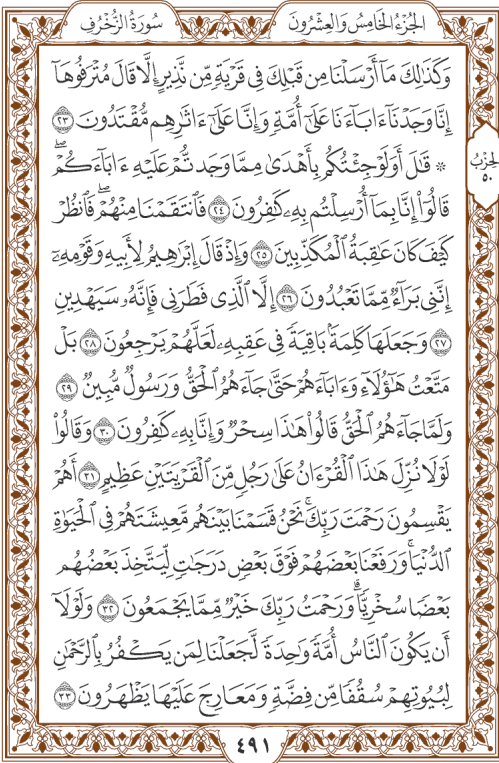 الجُزْءُ الخَامِسُ وَالعِشْرُونَ
سُورَةُ الزُّخْرُفِ
وَكَذَٰلِكَ مَآ أَرْسَلْنَا مِن قَبْلِكَ فِي قَرْيَةٍ مِّن نَّذِيرٍ إِلَّا قَالَ مُتْرَفُوهَآ
إِنَّا وَجَدْنَآ ءَابَآءَنَا عَلَىٰٓ أُمَّةٍ وَإِنَّا عَلَىٰٓ ءَاثَٰرِهِم مُّقْتَدُونَ ٢٣
۞ قَٰلَ أَوَلَوْ جِئْتُكُم بِأَهْدَىٰ مِمَّا وَجَدتُّمْ عَلَيْهِ ءَابَآءَكُمْۖ
قَالُوٓاْ إِنَّا بِمَآ أُرْسِلْتُم بِهِۦ كَٰفِرُونَ ٢٤ فَٱنتَقَمْنَا مِنْهُمْۖ فَٱنظُرْ
كَيْفَ كَانَ عَٰقِبَةُ ٱلْمُكَذِّبِينَ ٢٥ وَإِذْ قَالَ إِبْرَٰهِيمُ لِأَبِيهِ وَقَوْمِهِۦٓ
إِنَّنِي بَرَآءٌ مِّمَّا تَعْبُدُونَ ٢٦ إِلَّا ٱلَّذِي فَطَرَنِي فَإِنَّهُۥ سَيَهْدِينِ
٢٧ وَجَعَلَهَا كَلِمَةًۢ بَاقِيَةً فِي عَقِبِهِۦ لَعَلَّهُمْ يَرْجِعُونَ ٢٨ بَلْ
مَتَّعْتُ هَٰٓؤُلَآءِ وَءَابَآءَهُمْ حَتَّىٰ جَآءَهُمُ ٱلْحَقُّ وَرَسُولٌ مُّبِينٌ ٢٩
وَلَمَّا جَآءَهُمُ ٱلْحَقُّ قَالُواْ هَٰذَا سِحْرٌ وَإِنَّا بِهِۦ كَٰفِرُونَ ٣٠ وَقَالُواْ
لَوْلَا نُزِّلَ هَٰذَا ٱلْقُرْءَانُ عَلَىٰ رَجُلٍ مِّنَ ٱلْقَرْيَتَيْنِ عَظِيمٍ ٣١ أَهُمْ
يَقْسِمُونَ رَحْمَتَ رَبِّكَۚ نَحْنُ قَسَمْنَا بَيْنَهُم مَّعِيشَتَهُمْ فِي ٱلْحَيَوٰةِ
ٱلدُّنْيَاۚ وَرَفَعْنَا بَعْضَهُمْ فَوْقَ بَعْضٍ دَرَجَٰتٍ لِّيَتَّخِذَ بَعْضُهُم
بَعْضًا سُخْرِيًّاۗ وَرَحْمَتُ رَبِّكَ خَيْرٌ مِّمَّا يَجْمَعُونَ ٣٢ وَلَوْلَآ
أَن يَكُونَ ٱلنَّاسُ أُمَّةً وَٰحِدَةً لَّجَعَلْنَا لِمَن يَكْفُرُ بِٱلرَّحْمَٰنِ
لِبُيُوتِهِمْ سُقُفًا مِّن فِضَّةٍ وَمَعَارِجَ عَلَيْهَا يَظْهَرُونَ ٣٣
الحِزْبُ
٥٠
٤٩١